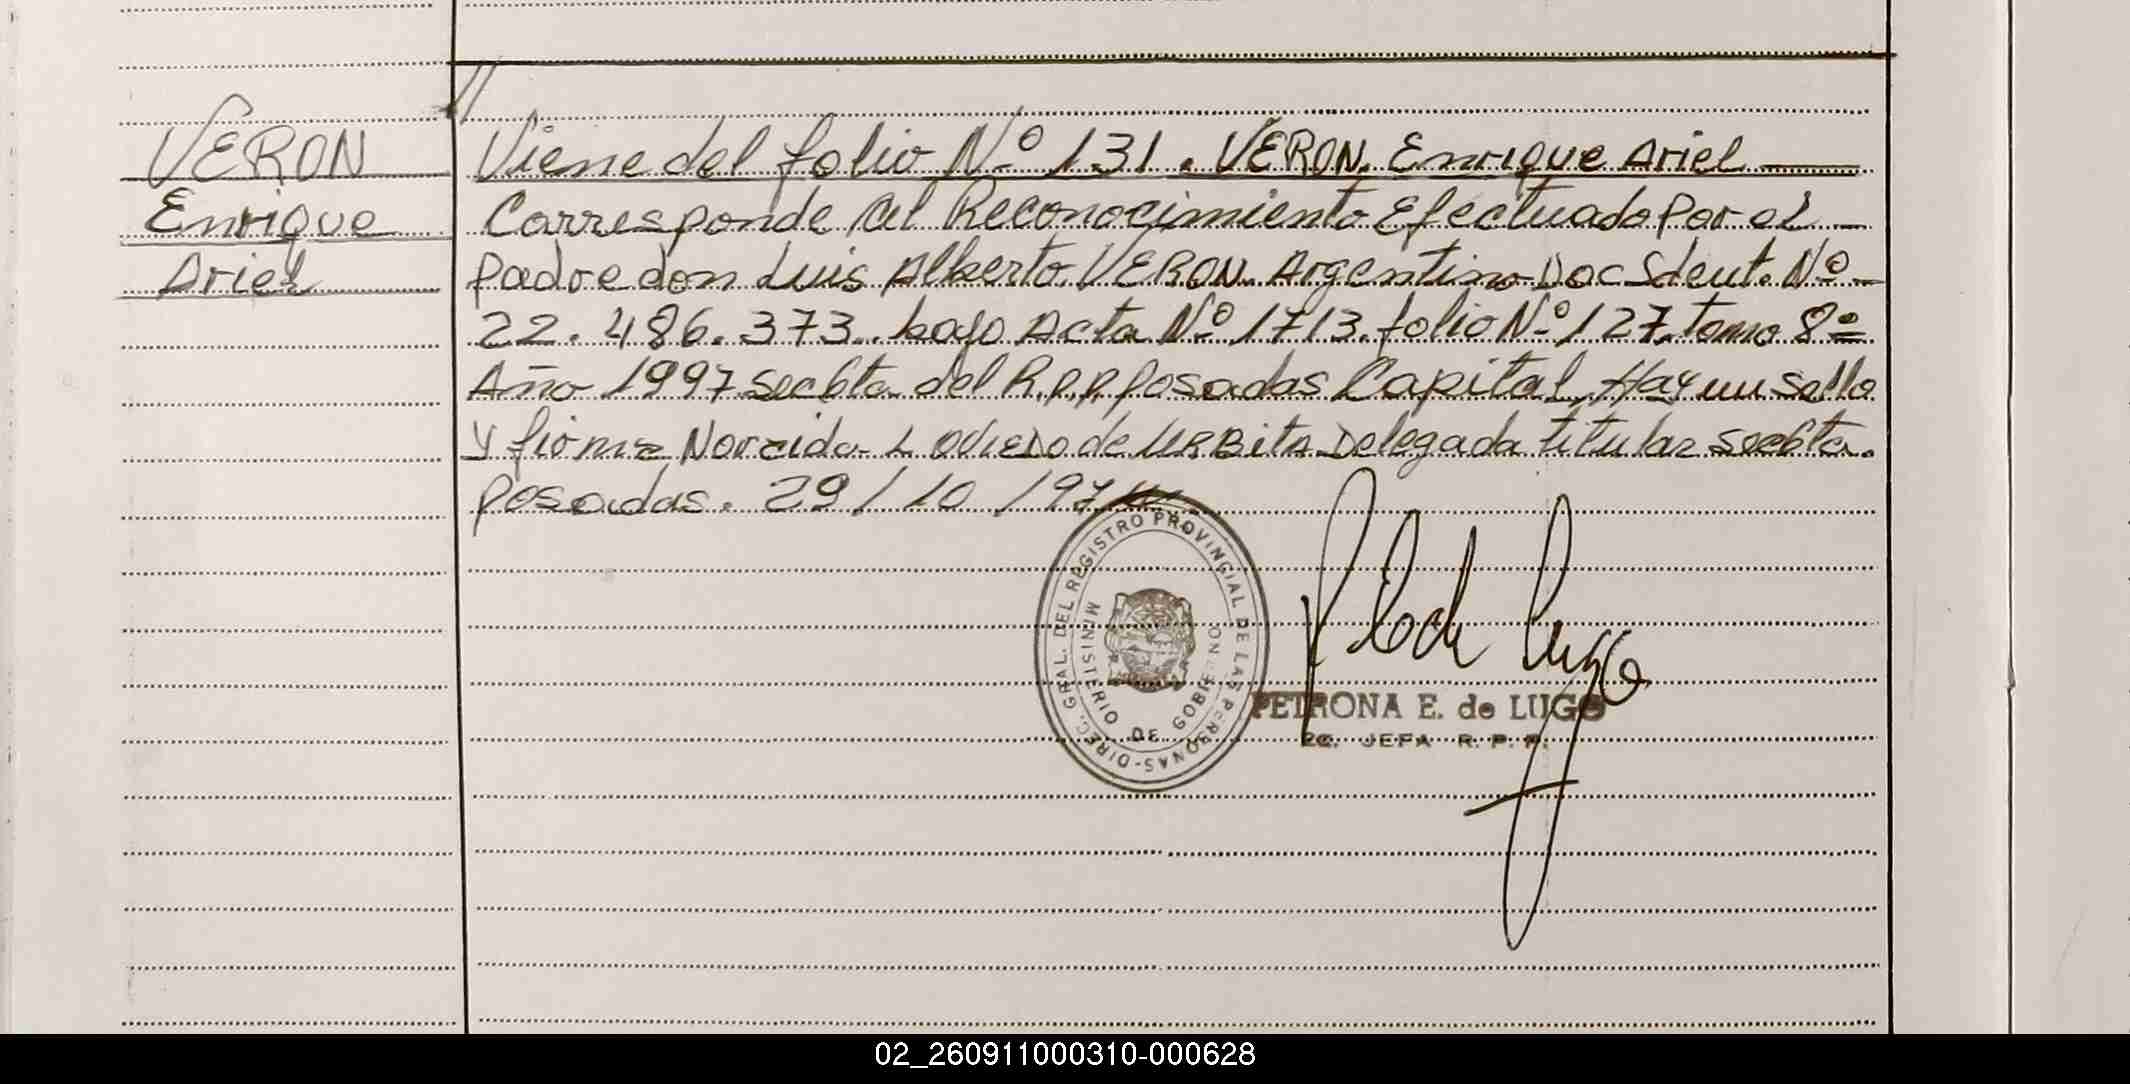 VERON
Enrique
Ariel
Viene del folio Nº 131. VERON. Enrique Ariel
Corresponde al Reconocimiento Efectuado Por el
Padre don Luis Alberto VERON. Argentino Doc Ident. Nº
22.486.373.. bajo Acta Nº 1713. folio Nº 127. tomo 8º
Año 1997 Sec 6ta del R.P.P. Posadas Capital. Hay un sello
y firma L OVIEDO de URBITA Delegada titular Sec 6ta.
Posadas. 29/10/97
DIREC. GRAL. DEL REGISTRO PROVINCIAL DE LAS PERSONAS-
MINISTERIO DE GOBIERNO
PETRONA E. de LUGO
JEFA R. P. P.
02_260911000310-000628